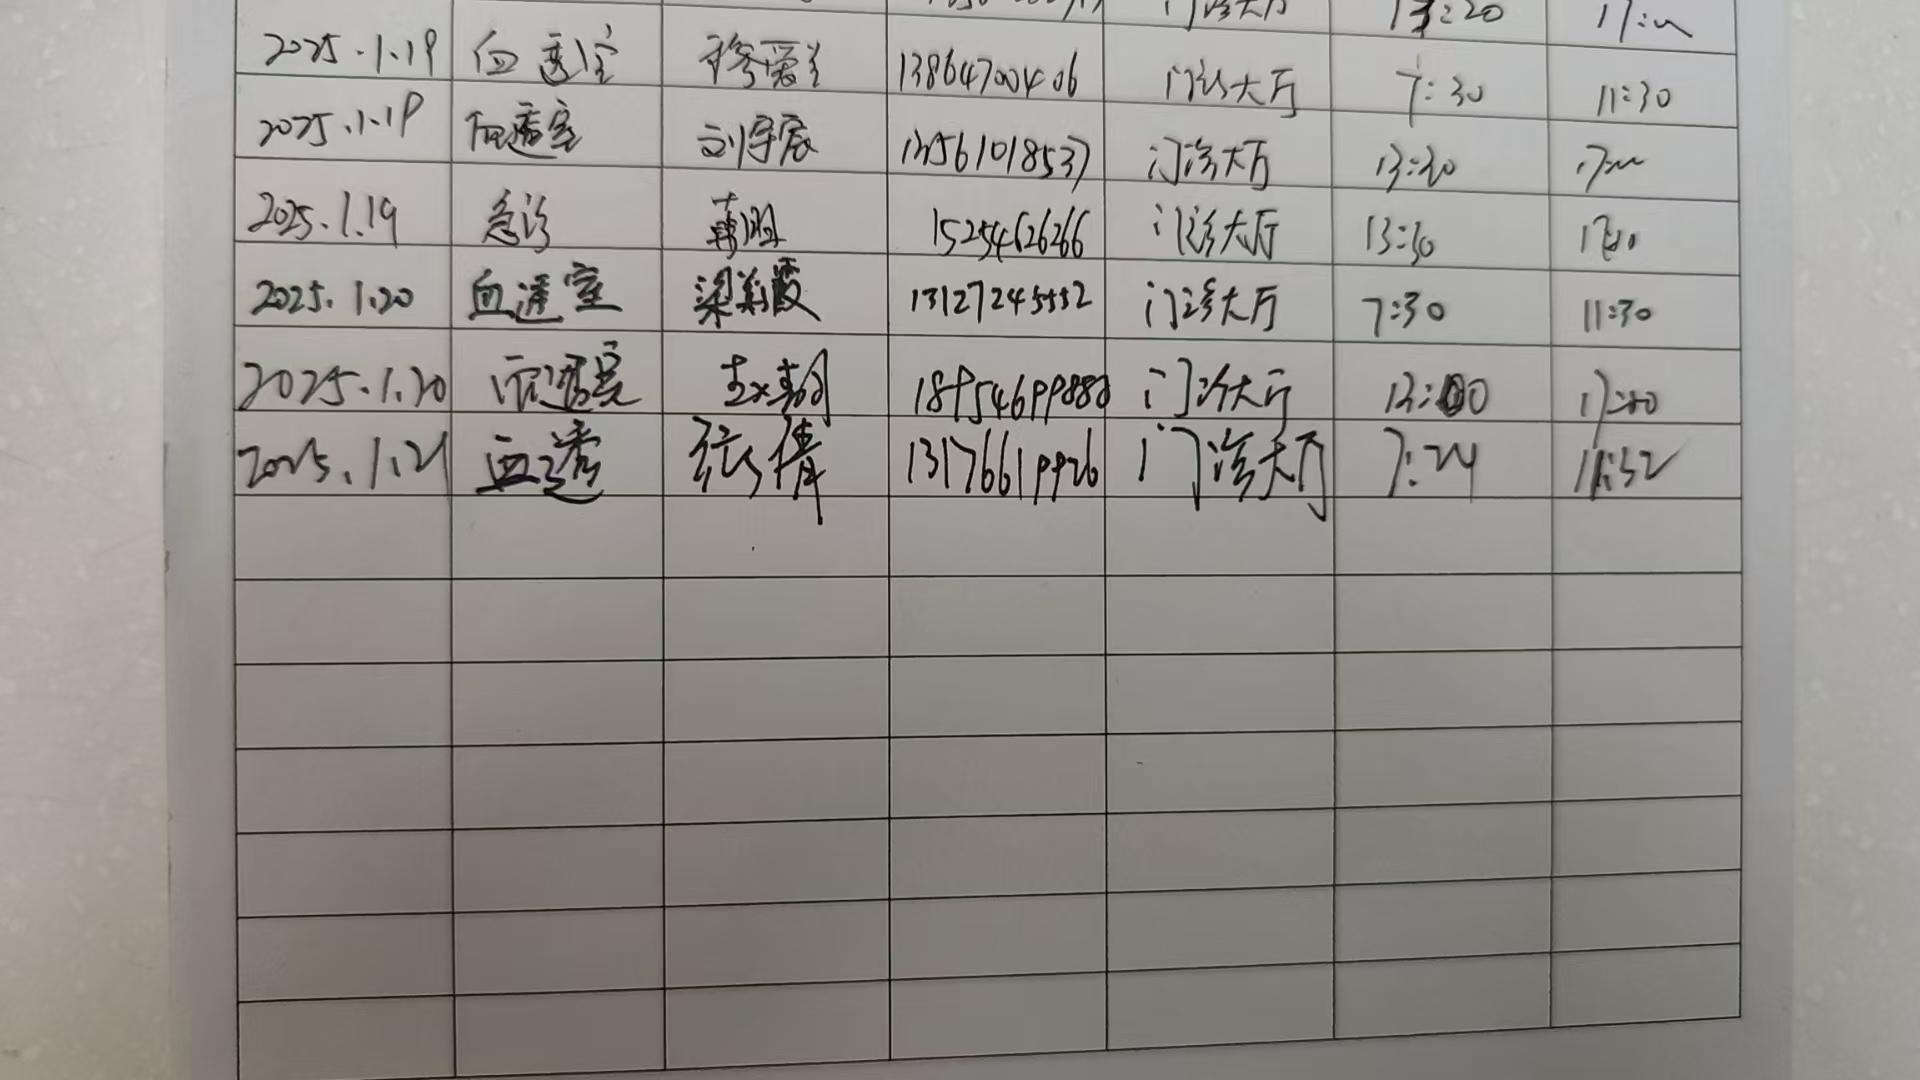 门诊大厅 13:20 17:00
2025.1.19 血透室 13864700406 门诊大厅 7:30 11:30
2025.1.19 血透室 刘宇宸 13561018537 门诊大厅 13:30 17:00
2025.1.19 急诊 15254626266 门诊大厅 13:30
2025.1.20 血透室 梁美霞 13127245552 门诊大厅 7:30 11:30
2025.1.20 血透室 18954699888 门诊大厅 13:00 17:00
2025.1.21 血透 张倩 13176619926 门诊大厅 7:24 11:32